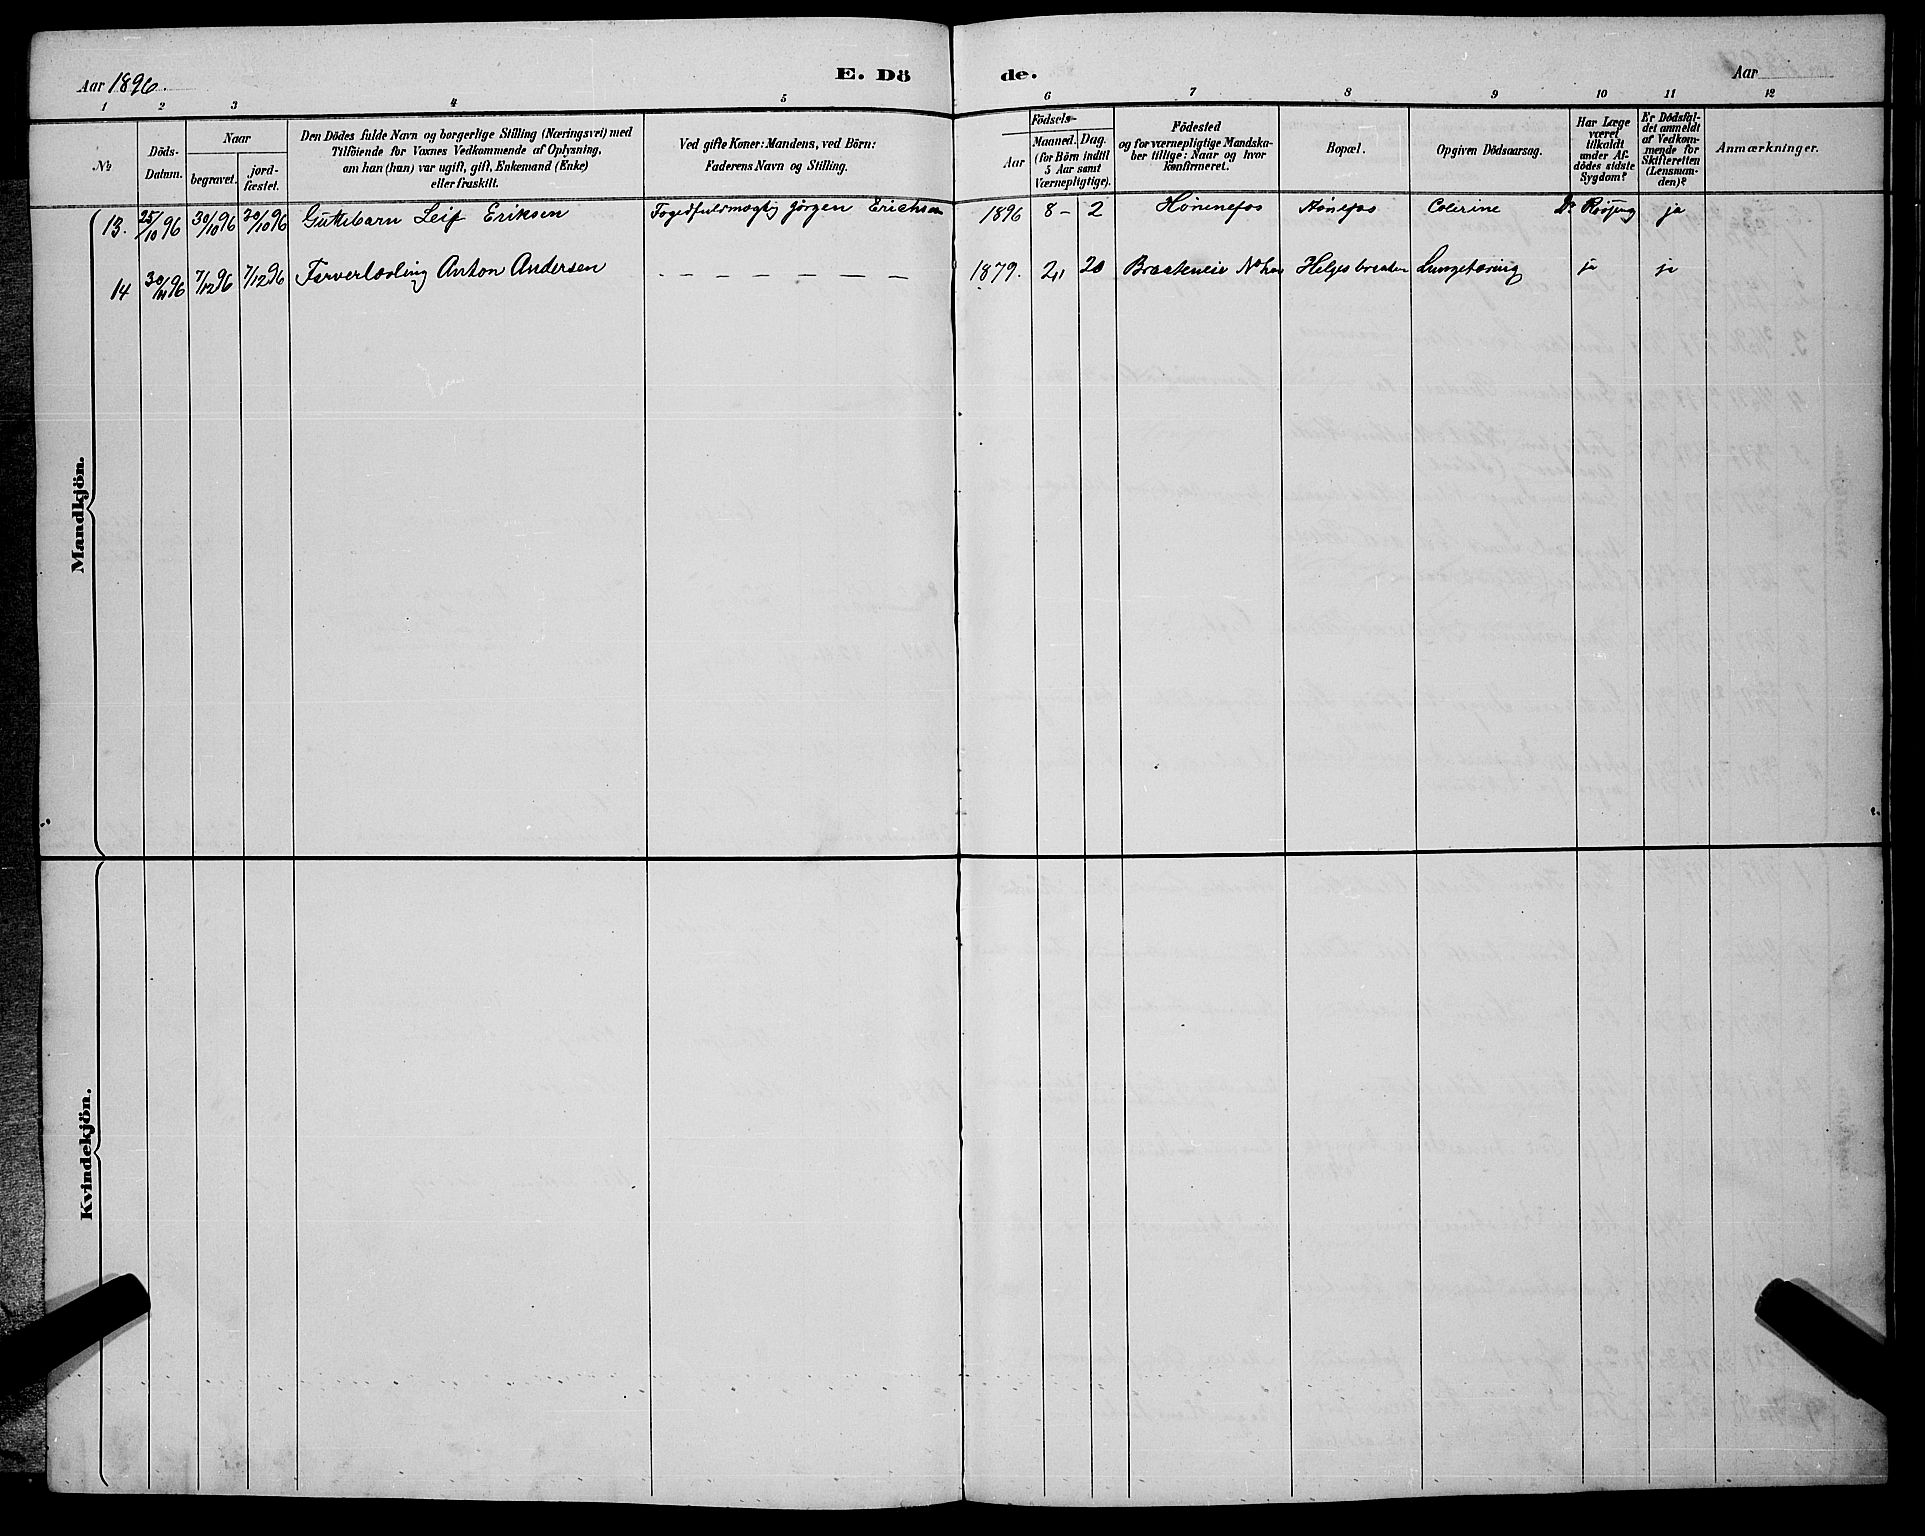 Aar 1896.
E. Dö de.
Aar
1 2 3 4 5 6 7 8 9 10 11 12
No.
Döds-
Datum.
Naar
begravet.
jord-
fæstet.
Den Dödes fulde Navn og borgerlige Stilling (Næringsvei) med
Tilföiende for Voxnes Vedkommende af Oplysning,
om han (hun) var ugift, gift, Enkemand (Enke)
eller fraskilt.
Ved gifte Koner: Mandens, ved Börn:
Faderens Navn og Stilling.
Födsels-
Aar
Maaned. Dag.
(for Börn indtil
5 Aar samt
Værnepligtige).
Födested
og for værnepligtige Mandska-
ber tillige: Naar og hvor
konfirmeret.
Bopæl.
Opgiven Dödsaarsag.
Har Læge
været
tilkaldt
under Af-
dödes sidste
Sygdom?
Er Dödsfal-
det anmeldt
af Vedkom-
mende for
Skifteretten
(Lensman-
den)?
Anmærkninger.
Mandkjön.
13. 25/10 96 30/10 96 30/10 96 Guttebarn Leif Eriksen Fogedfuldmægtig Jörgen Erichsen 1896 8 - 2 Hönenefos Hönefos Colerine Dr ja
14 30/11 96 7/12 96 7/12 96 Farverlærling Anton Andersen - - - - - - - 1879. 20 Braateneie Helgesbraaten Lungetæring ja ja
Kvindekjön.